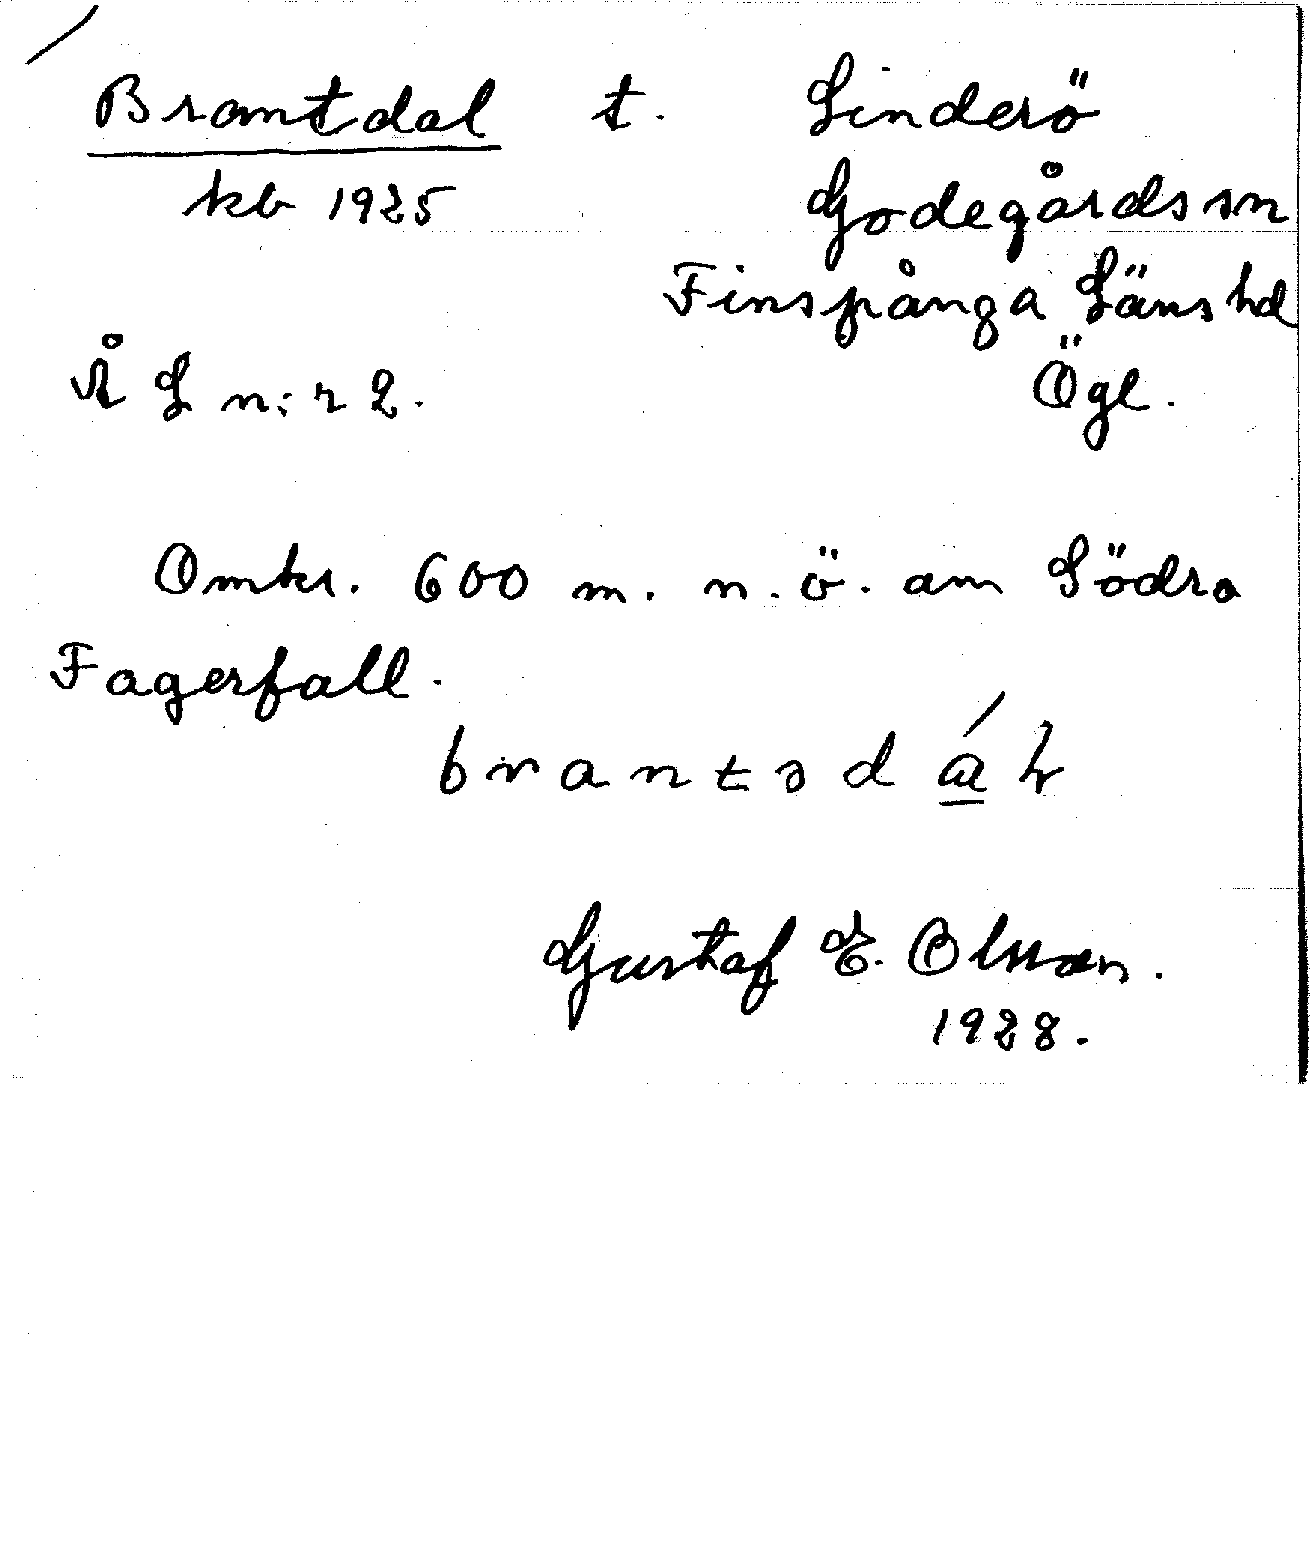 Brantdal t. Linderö
kb 1925 Godegårds sn
Finspånga Läns hd
Å L n:r 2. Ögl.
Omkr. 600 m. n. ö. om Södra
Fagerfall.
Gustaf E. Olsson.
1928.